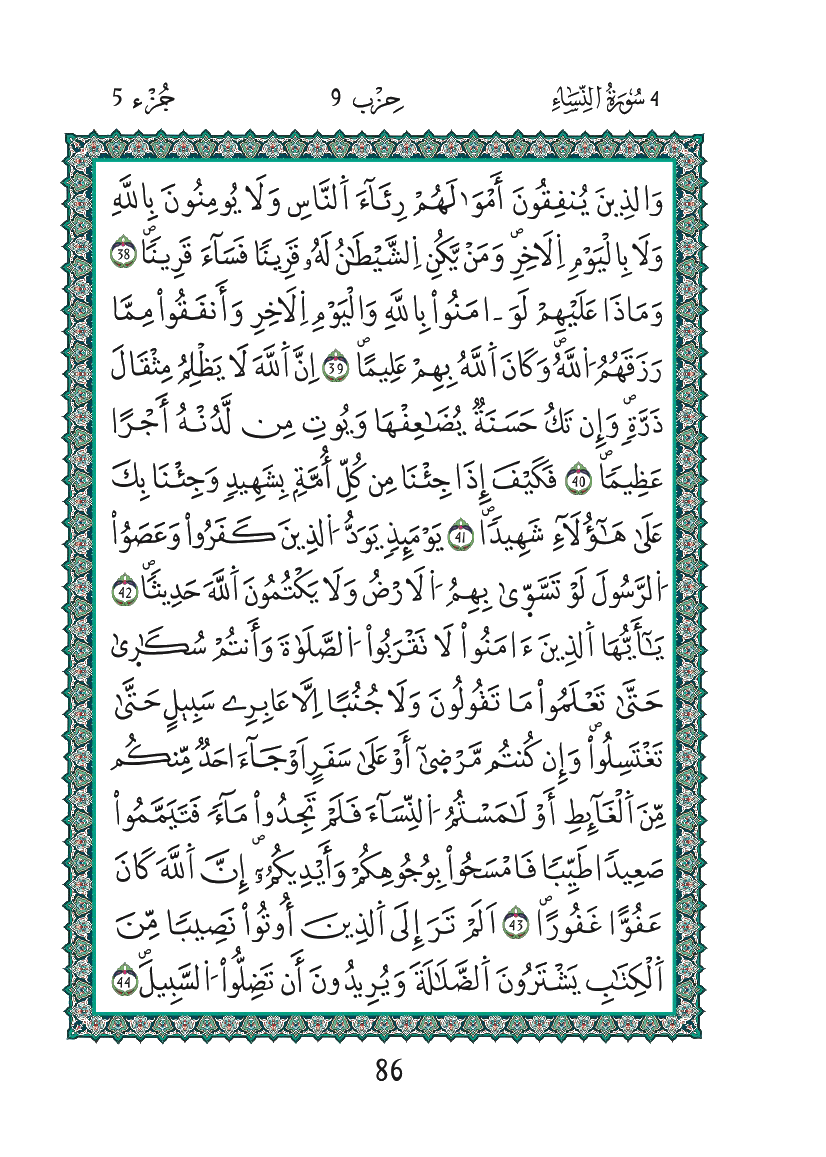 4 سُورَةُ النِّسَاءِ حِزْب 9 جُزْء 5
وَالذِينَ يُنفِقُونَ أَمْوَٰلَهُمْ رِئَآءَ اَ۬لنَّاسِ وَلَا يُومِنُونَ بِاللَّهِ
وَلَا بِالْيَوْمِ اِ۬لَاخِرِۖ وَمَنْ يَّكُنِ اِ۬لشَّيْطَٰنُ لَهُۥ قَرِينٗا فَسَآءَ قَرِينٗاۖ 38
وَمَاذَا عَلَيْهِمْ لَوَ ـ امَنُواْ بِاللَّهِ وَالْيَوْمِ اِ۬لَاخِرِ وَأَنفَقُواْ مِمَّا
رَزَقَهُمُ اُ۬للَّهُۖ وَكَانَ اَ۬للَّهُ بِهِمْ عَلِيمًاۖ 39 اِنَّ اَ۬للَّهَ لَا يَظْلِمُ مِثْقَالَ
ذَرَّةٖۖ وَإِن تَكُ حَسَنَةٞ يُضَٰعِفْهَا وَيُوتِ مِن لَّدُنْهُ أَجْرًا
عَظِيمٗاۖ 40 فَكَيْفَ إِذَا جِئْنَا مِن كُلِّ أُمَّةِۢ بِشَهِيدٖ وَجِئْنَا بِكَ
عَلَىٰ هَٰٓؤُلَآءِ شَهِيدٗاۖ 41 يَوْمَئِذٖ يَوَدُّ اُ۬لذِينَ كَفَرُواْ وَعَصَوُاْ
اُ۬لرَّسُولَ لَوْ تَسَّوّ۪ىٰ بِهِمُ اُ۬لَارْضُ وَلَا يَكْتُمُونَ اَ۬للَّهَ حَدِيثٗاۖ 42
يَٰٓأَيُّهَا اَ۬لذِينَ ءَامَنُواْ لَا تَقْرَبُواْ اُ۬لصَّلَوٰةَ وَأَنتُمْ سُكَٰر۪ىٰ
حَتَّىٰ تَعْلَمُواْ مَا تَقُولُونَ وَلَا جُنُبًا اِلَّا عَابِرِے سَبِيلٍ حَتَّىٰ
تَغْتَسِلُواْۖ وَإِن كُنتُم مَّرْض۪ىٰٓ أَوْ عَلَىٰ سَفَرٍ اَوْ جَآءَ احَدٞ مِّنكُم
مِّنَ اَ۬لْغَآئِطِ أَوْ لَٰمَسْتُمُ اُ۬لنِّسَآءَ فَلَمْ تَجِدُواْ مَآءٗ فَتَيَمَّمُواْ
صَعِيدٗا طَيِّبٗا فَامْسَحُواْ بِوُجُوهِكُمْ وَأَيْدِيكُمُۥٓۖ إِنَّ اَ۬للَّهَ كَانَ
عَفُوًّا غَفُورًاۖ 43 اَلَمْ تَرَ إِلَى اَ۬لذِينَ أُوتُواْ نَصِيبٗا مِّنَ
اَ۬لْكِتَٰبِ يَشْتَرُونَ اَ۬لضَّلَٰلَةَ وَيُرِيدُونَ أَن تَضِلُّواْ اُ۬لسَّبِيلَۖ 44
86